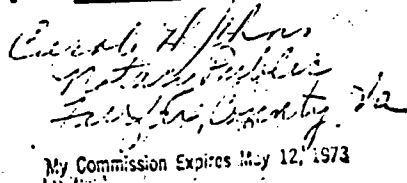 Carol H John
Notary Public
County, Va
My Commission Expires May 12, 1973